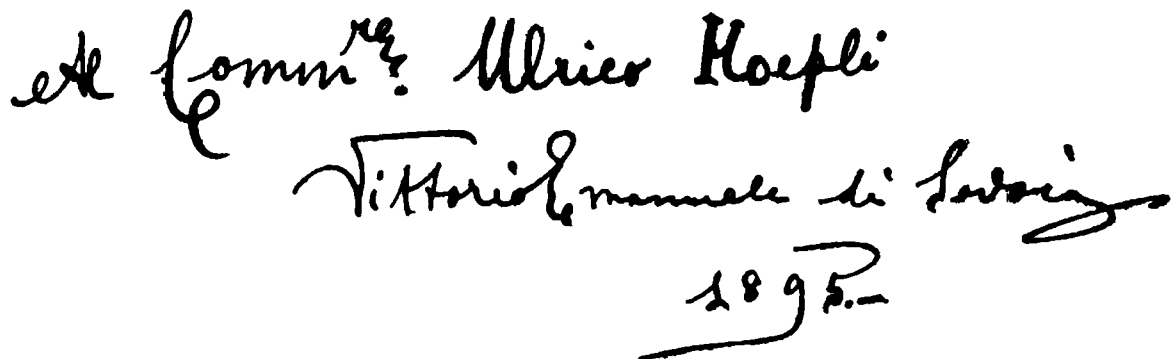 Al Comm.re Ulrico Hoepli
Vittorio Emanuele di Savoia
1895.—